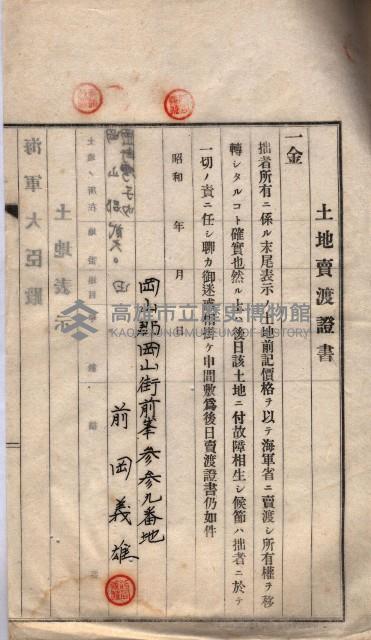 土地賣渡證書
一金
拙者所有ニ係ル末尾表示ノ土地前記價格ヲ以テ海軍省ニ賣渡シ所有權ヲ移
轉シタルコト確實也然ル上ハ後日該土地ニ付故障相生シ候節ハ拙者ニ於テ
一切ノ責ニ任シ聊カ御迷惑相掛ケ申間敷爲後日賣渡證書仍如件
昭和 年 月 日
岡山郡岡山街前峯参参九番地
前岡義雄
土地ノ所在地
土地表
海軍大臣殿
高雄市立歷史博物館
KAOHSIUNG MUSEUM OF HISTORY